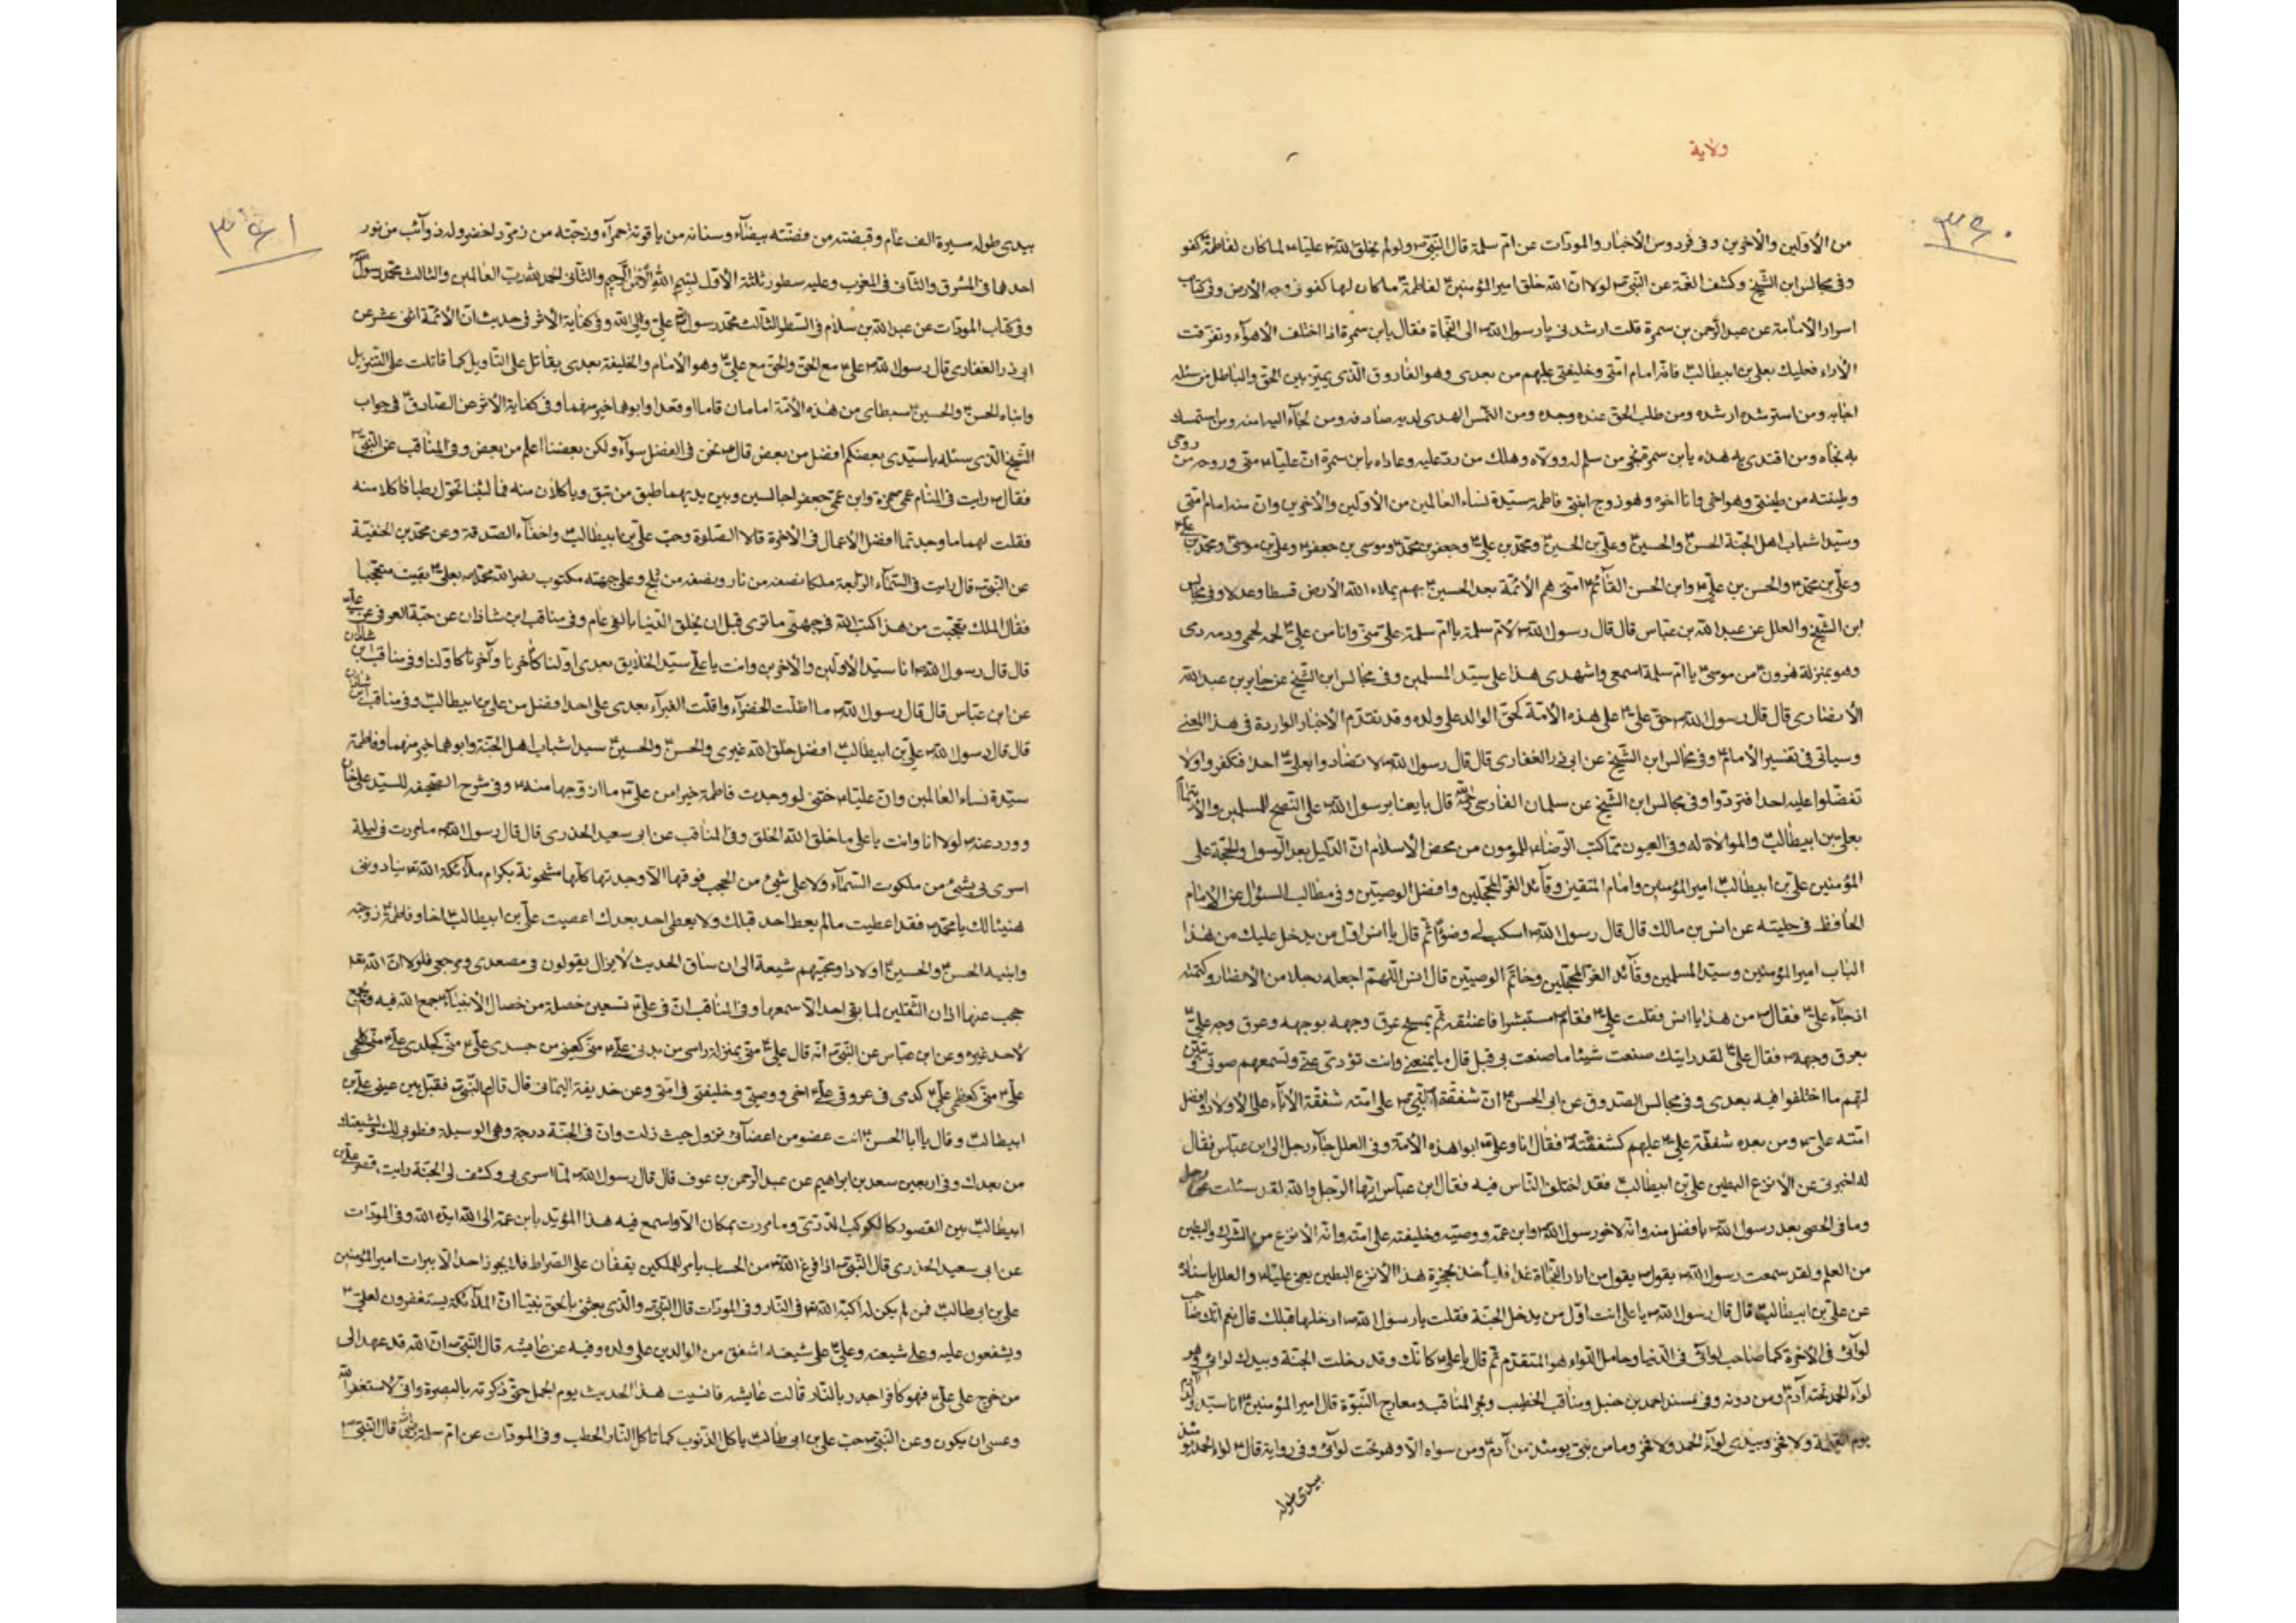 ولاية
٣٦٠
من الأولين والآخرين وفى فردوس الأخبار والمودات عن ام سلمة قال النبى ص ولو لم يخلق الله تع عليا ع لما كان لفاطمة كفو
وفى مجالس ابن الشيخ وكشف الغمة عن النبى ص لولا ان الله خلق امير المؤمنين ع لفاطمة ع ما كان لها كفو فى وجه الأرض وفى كتاب
اسرار الأمامة عن عبد الرحمن بن سمرة قلت ارشدنى يا رسول الله ص الى النجاة فقال يابن سمرة فاذا اختلف الأهوآء وتفرقت
الأراء فعليك بعلى بن ابيطالب ع فانه امام امتى وخليفتى عليهم من بعدى وهو الفاروق الذى يميز بين الحق والباطل من سئله
اجابه ومن استرشده ارشده ومن طلب الحق عنده وجده ومن التمس الهدى لديه صادفه ومن لجاء اليه امنه ومن استمسك
به نجاه ومن اقتدى به هداه يابن سمرة نجى من سلم له ووالاه وهلك من رد عليه وعاداه يابن سمرة ان عليا ع منى وروحه من روحى
وطينته من طينتى وهو اخى وانا اخوه وهو زوج ابنتى فاطمة سيدة نساء العالمين من الأولين والأخرين وان منه امام امتى
وسيدا شباب اهل الجنة الحسن ع والحسين ع وعلى بن الحسين ع ومحمد بن على ع وجعفر بن محمد ع وموسى بن جعفر ع وعلى بن موسى ع ومحمد بن على ع
وعلى بن محمد ع والحسن بن على ع وابن الحسن القآئم ع امتى هم الأئمة بعد الحسين ع بهم يملاء الله الأرض قسطا وعدلا وفى مجالس
ابن الشيخ والعلل عن عبد الله بن عباس قال قال رسول الله ص لأم سلمة يا ام سلمة على منى وانا من على ع لحمه لحمى ودمه دمى
وهو بمنزلة هرون ع من موسى ع يا ام سلمة اسمعى واشهدى هذا على سيد المسلمين وفى مجالس ابن الشيخ عن جابر بن عبد الله
الأنصارى قال قال رسول الله ص حق على ع على هذه الأمة كحق الوالد على ولده وقد تقدم الأخبار الواردة فى هذا المعنى
وسياتى فى تفسير الأمام ع وفى مجالس ابن الشيخ عن ابى ذر الغفارى قال قال رسول الله ص لا تضادوا بعلى ع احدا فتكفروا ولا
تفضلوا عليه احدا فترتدوا وفى مجالس ابن الشيخ عن سلمان الفارسى قال بايعنا رسول الله ص على النصح للمسلمين والأيتمام
بعلى بن ابيطالب ع والموالاة له وفى العيون مما كتب الرضا ع للمامون من محض الأسلام ان الدليل بعد الرسول والحجة على
المؤمنين على بن ابيطالب ع امير المؤمنين وامام المتقين وقآئد الغر المحجلين وافضل الوصيين وفى مطالب السئول عن الإمام
الحافظ فى حليته عن انس بن مالك قال قال رسول الله ص اسكب لى وضوء ثم قال يا انس اول من يدخل عليك من هذا
الباب امير المؤمنين وسيد المسلمين وقآئد الغر المحجلين وخاتم الوصيين قال انس اللهم اجعله رجلا من الأنصار وكتمته
اذ جآء على ع فقال ص من هذا يا انس فقلت على ع فقام ص مستبشرا فاعتنقه ثم يمسح عرق وجهه بوجهه وعرق وجه على ع
بعرق وجهه ص فقال على ع لقد رايتك صنعت شيئا ما صنعت بى قبل قال ما يمنعنى وانت تؤدى عنى وتسمعهم صوتى وتبين
لهم ما اختلفوا فيه بعدى وفى مجالس الصدوق عن ابى الحسن ع ان شفقة النبى ص على امته شفقة الأبآء على الأولاد وافضل
امته على ع ومن بعده شفقة على ع عليهم كشفقته ص فقال انا وعلى ع ابوا هذه الأمة وفى العلل جآء رجل الى ابن عباس فقال
له اخبرنى عن الأنزع البطين على بن ابيطالب ع فقد اختلف الناس فيه فقال ابن عباس ايها الرجل والله لقد سئلت عن رجل
وما فى الحصى بعد رسول الله ص بافضل منه وانه لاخو رسول الله ص وابن عمه ووصيه وخليفته على امته وانه الأنزع من الشرك والبطين
من العلم ولقد سمعت رسول الله ص يقول من اراد النجاة غدا فلياخذ بحجزة هذا الأنزع البطين يعنى عليا ع والعلل باسناده
عن على بن ابيطالب ع قال قال رسول الله ص يا على انت اول من يدخل الجنة فقلت يا رسول الله ص ادخلها قبلك قال نعم انك صاحب
لوآئى فى الآخرة كما صاحب لوآئى فى الدنيا وحامل اللواء هو المتقدم ثم قال يا على ع كانك وقد دخلت الجنة وبيدك لوائى وهو
لوآء الحمد تحته آدم ع ومن دونه وفى مسند احمد بن حنبل ومناقب الخطيب وبحر المناقب ومعارج النبوة قال امير المؤمنين ع انا سيد ولد آدم
يوم القيمة ولا فخر وبيدى لوآء الحمد ولا فخر وما من نبى يومئذ من آدم ع ومن سواه الا وهو تحت لوآئى وفى رواية قال ع لواء الحمد يومئذ
بيدى طوله
٣٦١
بيدى طوله مسيرة الف عام وقبضته من فضة بيضآء وسنانه من ياقوتة حمرآء وزجته من زمرد اخضر وله ذوآئب من نور
احدها فى المشرق والثانى فى المغرب وعليه سطور ثلثة الأول بسم الله الرحمن الرحيم والثانى الحمد لله رب العالمين والثالث محمد رسول الله
وفى كتاب المودات عن عبد الله بن سلام فى السطر الثالث محمد رسول الله على ولى الله وفى كفاية الأثر فى حديث ان الأئمة اثنى عشر عن
ابى ذر الغفارى قال رسول الله ص على ع مع الحق والحق مع على ع وهو الأمام والخليفة بعدى يقاتل على التاويل كما قاتلت على التنزيل
وابناه الحسن ع والحسين ع سبطاى من هذه الأمة امامان قاما او قعدا وابوهما خير منهما وفى كفاية الأثر عن الصادق ع فى جواب
الشيخ الذى سئله يا سيدى بعضكم افضل من بعض قال ع نحن فى الفضل سوآء ولكن بعضنا اعلم من بعض وفى المناقب عن النبى ص
فقال ص رايت فى المنام عمى حمزة وابن عمى جعفر جالسين وبين يديهما طبق من نبق وياكلان منه فما لبثنا تحول رطبا فاكلا منه
فقلت لهما ما وجدتما افضل الأعمال فى الأخرة قالا الصلوة وحب على بن ابيطالب ع واخفآء الصدقة وعن محمد بن الحنفية
عن النبى ص قال رايت فى السمآء الرابعة ملكا نصفه من نار ونصفه من ثلج وعلى جبهته مكتوب نصر الله محمد ص بعلى ع بقيت متعجبا
فقال الملك تعجبت من هذا كتب الله فى جبهتى ما ترى قبل ان يخلق الدنيا بالفى عام وفى مناقب ابن شاذان عن حبة العرفى عن على ع
قال قال رسول الله ص انا سيد الأولين والأخرين وانت يا على سيد الخلايق بعدى اولنا كآخرنا وآخرنا كاولنا وفى مناقب ابن شاذان
عن ابن عباس قال قال رسول الله ص ما اظلت الخضرآء واقلت الغبرآء بعدى على احد افضل من على بن ابيطالب ع وفى مناقب ابن شاذان
قال قال رسول الله ص على بن ابيطالب ع افضل خلق الله غيرى والحسن ع والحسين ع سيدا شباب اهل الجنة وابوهما خير منهما وفاطمة
سيدة نساء العالمين وان عليا ع ختنى لو وجدت فاطمة خيرا من على ع ما ازوجها منه ع وفى شرح الصحيفه للسيد عليخان
وورد عنه ص لولا انا وانت يا على ما خلق الله الخلق وفى المناقب عن ابى سعيد الخدرى قال قال رسول الله ص ما مررت فى ليلة
اسرى بى بشئ من ملكوت السمآء ولا على شئ من الحجب فوقها الا وجدتها كلها مشحونة بكرام ملآئكة الله تع ينادوننى
هنيئا لك يا محمد ص فقد اعطيت ما لم يعط احد قبلك ولا يعطى احد بعدك اعطيت على بن ابيطالب ع اخا وفاطمة ع زوجته
وابنيه الحسن ع والحسين ع اولادا ومحبيهم شيعة الى ان ساق الحديث لا يزال يقولون فى مصعدى ومرجعى فلولا ان الله تع
حجب عنها اذان الثقلين لما بقى احد الا سمعها وفى المناقب ان فى على ع تسعين خصلة من خصال الأنبيآء جمع الله فيه ولم يجمع
لأحد غيره وعن ابن عباس عن النبى ص انه قال على ع منى بمنزلة راسى من بدنى على ع منى كعينى من جسدى على ع منى كجلدى على ع منى كلحمى
على ع منى كعظمى على ع كدمى فى عروقى على ع اخى ووصيى وخليفتى فى امتى وعن حذيفة اليمانى قال قام النبى ص فقبل بين عينى على بن
ابيطالب ع وقال يا ابا الحسن ع انت عضو من اعضآئى تزول حيث زلت وان فى الجنة درجة وهى الوسيلة فطوبى لك ولشيعتك
من بعدك وفى اربعين سعد بن ابراهيم عن عبد الرحمن بن عوف قال قال رسول الله ص لما اسرى بى وكشف لى الجنة رايت قصر على بن
ابيطالب ع بين القصور كالكوكب الدرى وما مررت بمكان الا واسمع فيه هذا المؤيد بابن عمه الى الله ايده الله وفى المودات
عن ابى سعيد الخدرى قال النبى ص اذا فرغ الله تع من الحساب يأمر للملكين يقفان على الصراط فلا يجوز احد الا ببرات امير المؤمنين
على بن ابى طالب ع فمن لم يكن له اكبه الله تع فى النار وفى المودات قال النبى ص والذى بعثنى بالحق نبيا ان الملآئكة يستغفرون لعلى ع
ويشفعون عليه وعلى شيعته وعلى ع على شيعته اشفق من الوالدين على ولده وفيه عن عايشه قال النبى ص ان الله قد عهد الى
من خرج على على ع فهو كافر اجدر بالنار قالت عايشه فانسيت هذا الحديث يوم الجمل حتى ذكرته بالبصرة وانى لاستغفر الله
وعسى ان يكون وعن النبى ص حب على بن ابى طالب ع ياكل الذنوب كما تاكل النار الحطب وفى المودات عن ام سلمة رض قال النبى ص